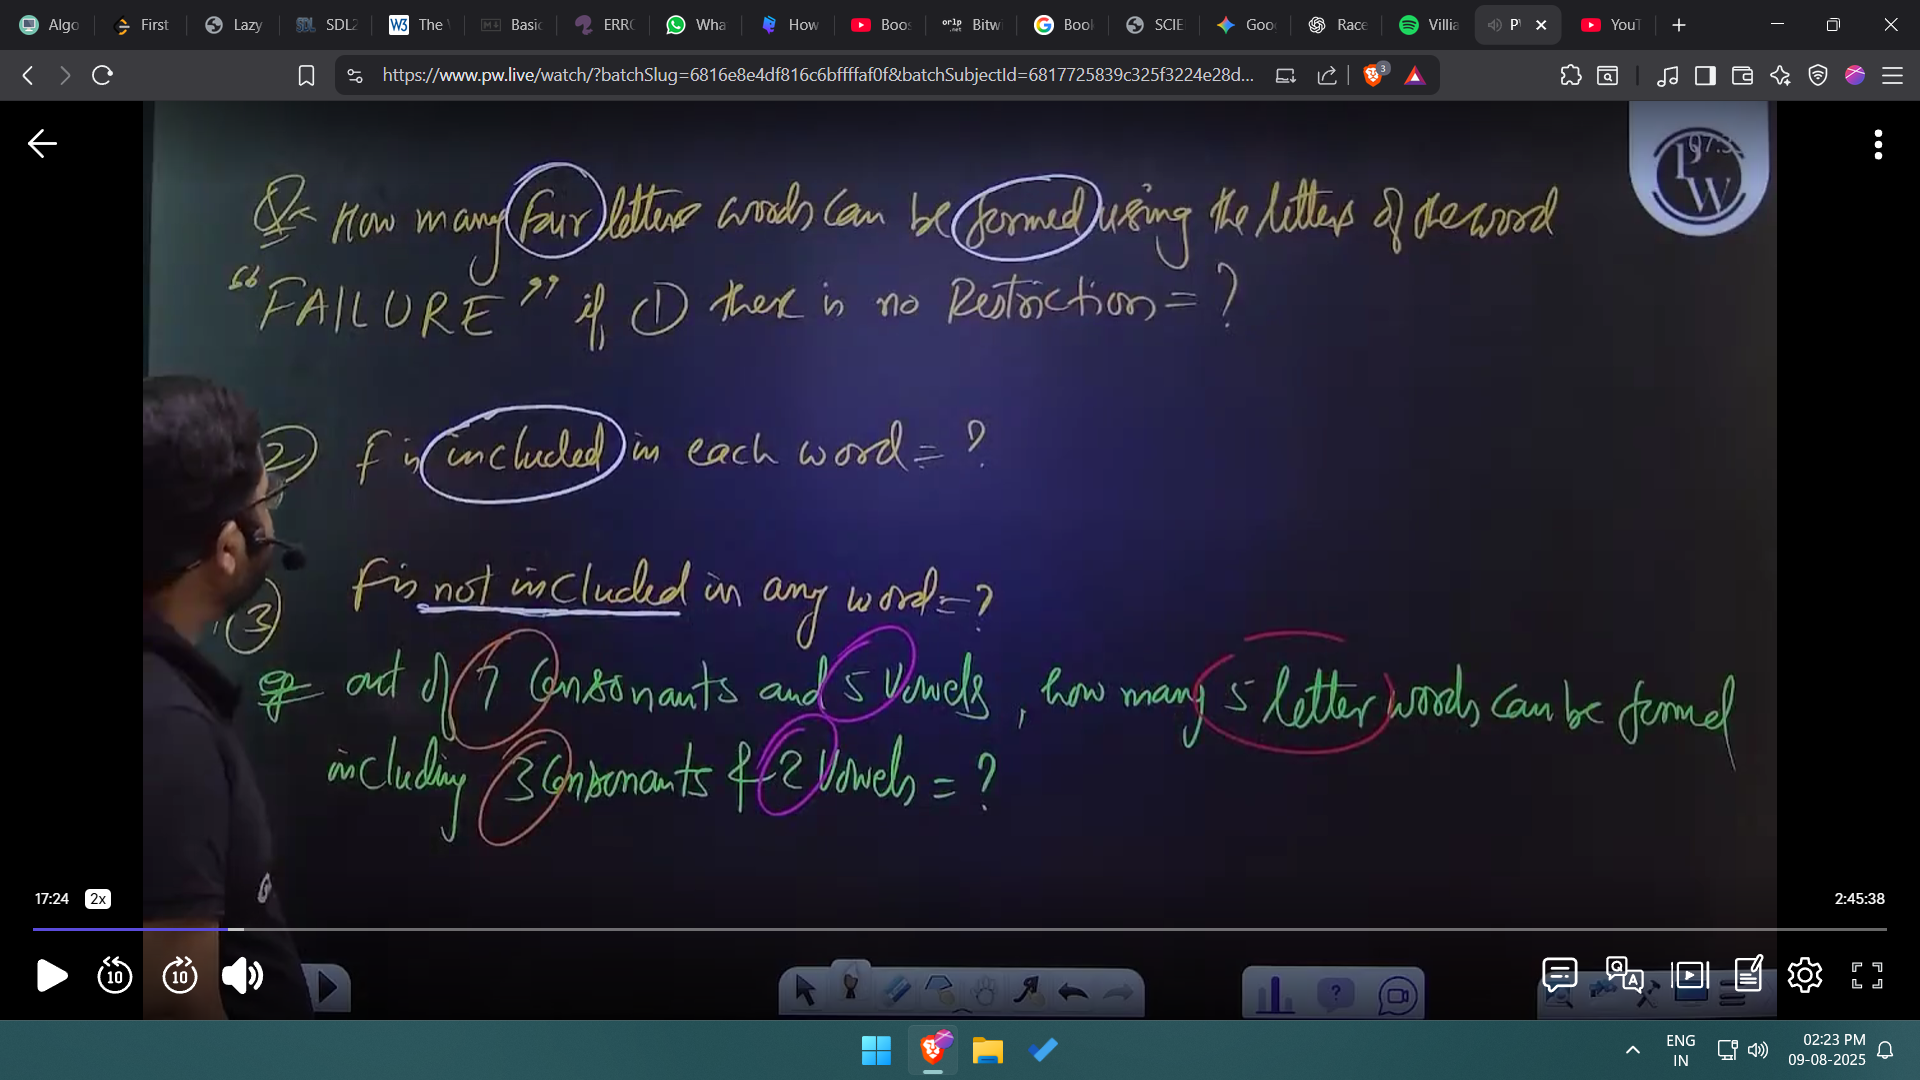 Algo
First
Lazy
SDL2
The
Basic
ERRC
Wha
How
Boos
Bitwi
Book
SCIE
Goo
Race
Villia
YouT
https://www.pw.live/watch/?batchSlug=6816e8e4df816c6bffffaf0f&batchSubjectId=6817725839c325f3224e28d...
3
PW
Q- How many four letters words can be formed using the letters of the word
"FAILURE" if ① there is no Restriction = ?
② F is included in each word = ?
③ F is not included in any word = ?
eg out of 7 Consonants and 5 Vowels, how many 5 letter words can be formed
including 3 Consonants & 2 Vowels = ?
17:24 2x 2:45:38
10 10
ENG
IN
02:23 PM
09-08-2025